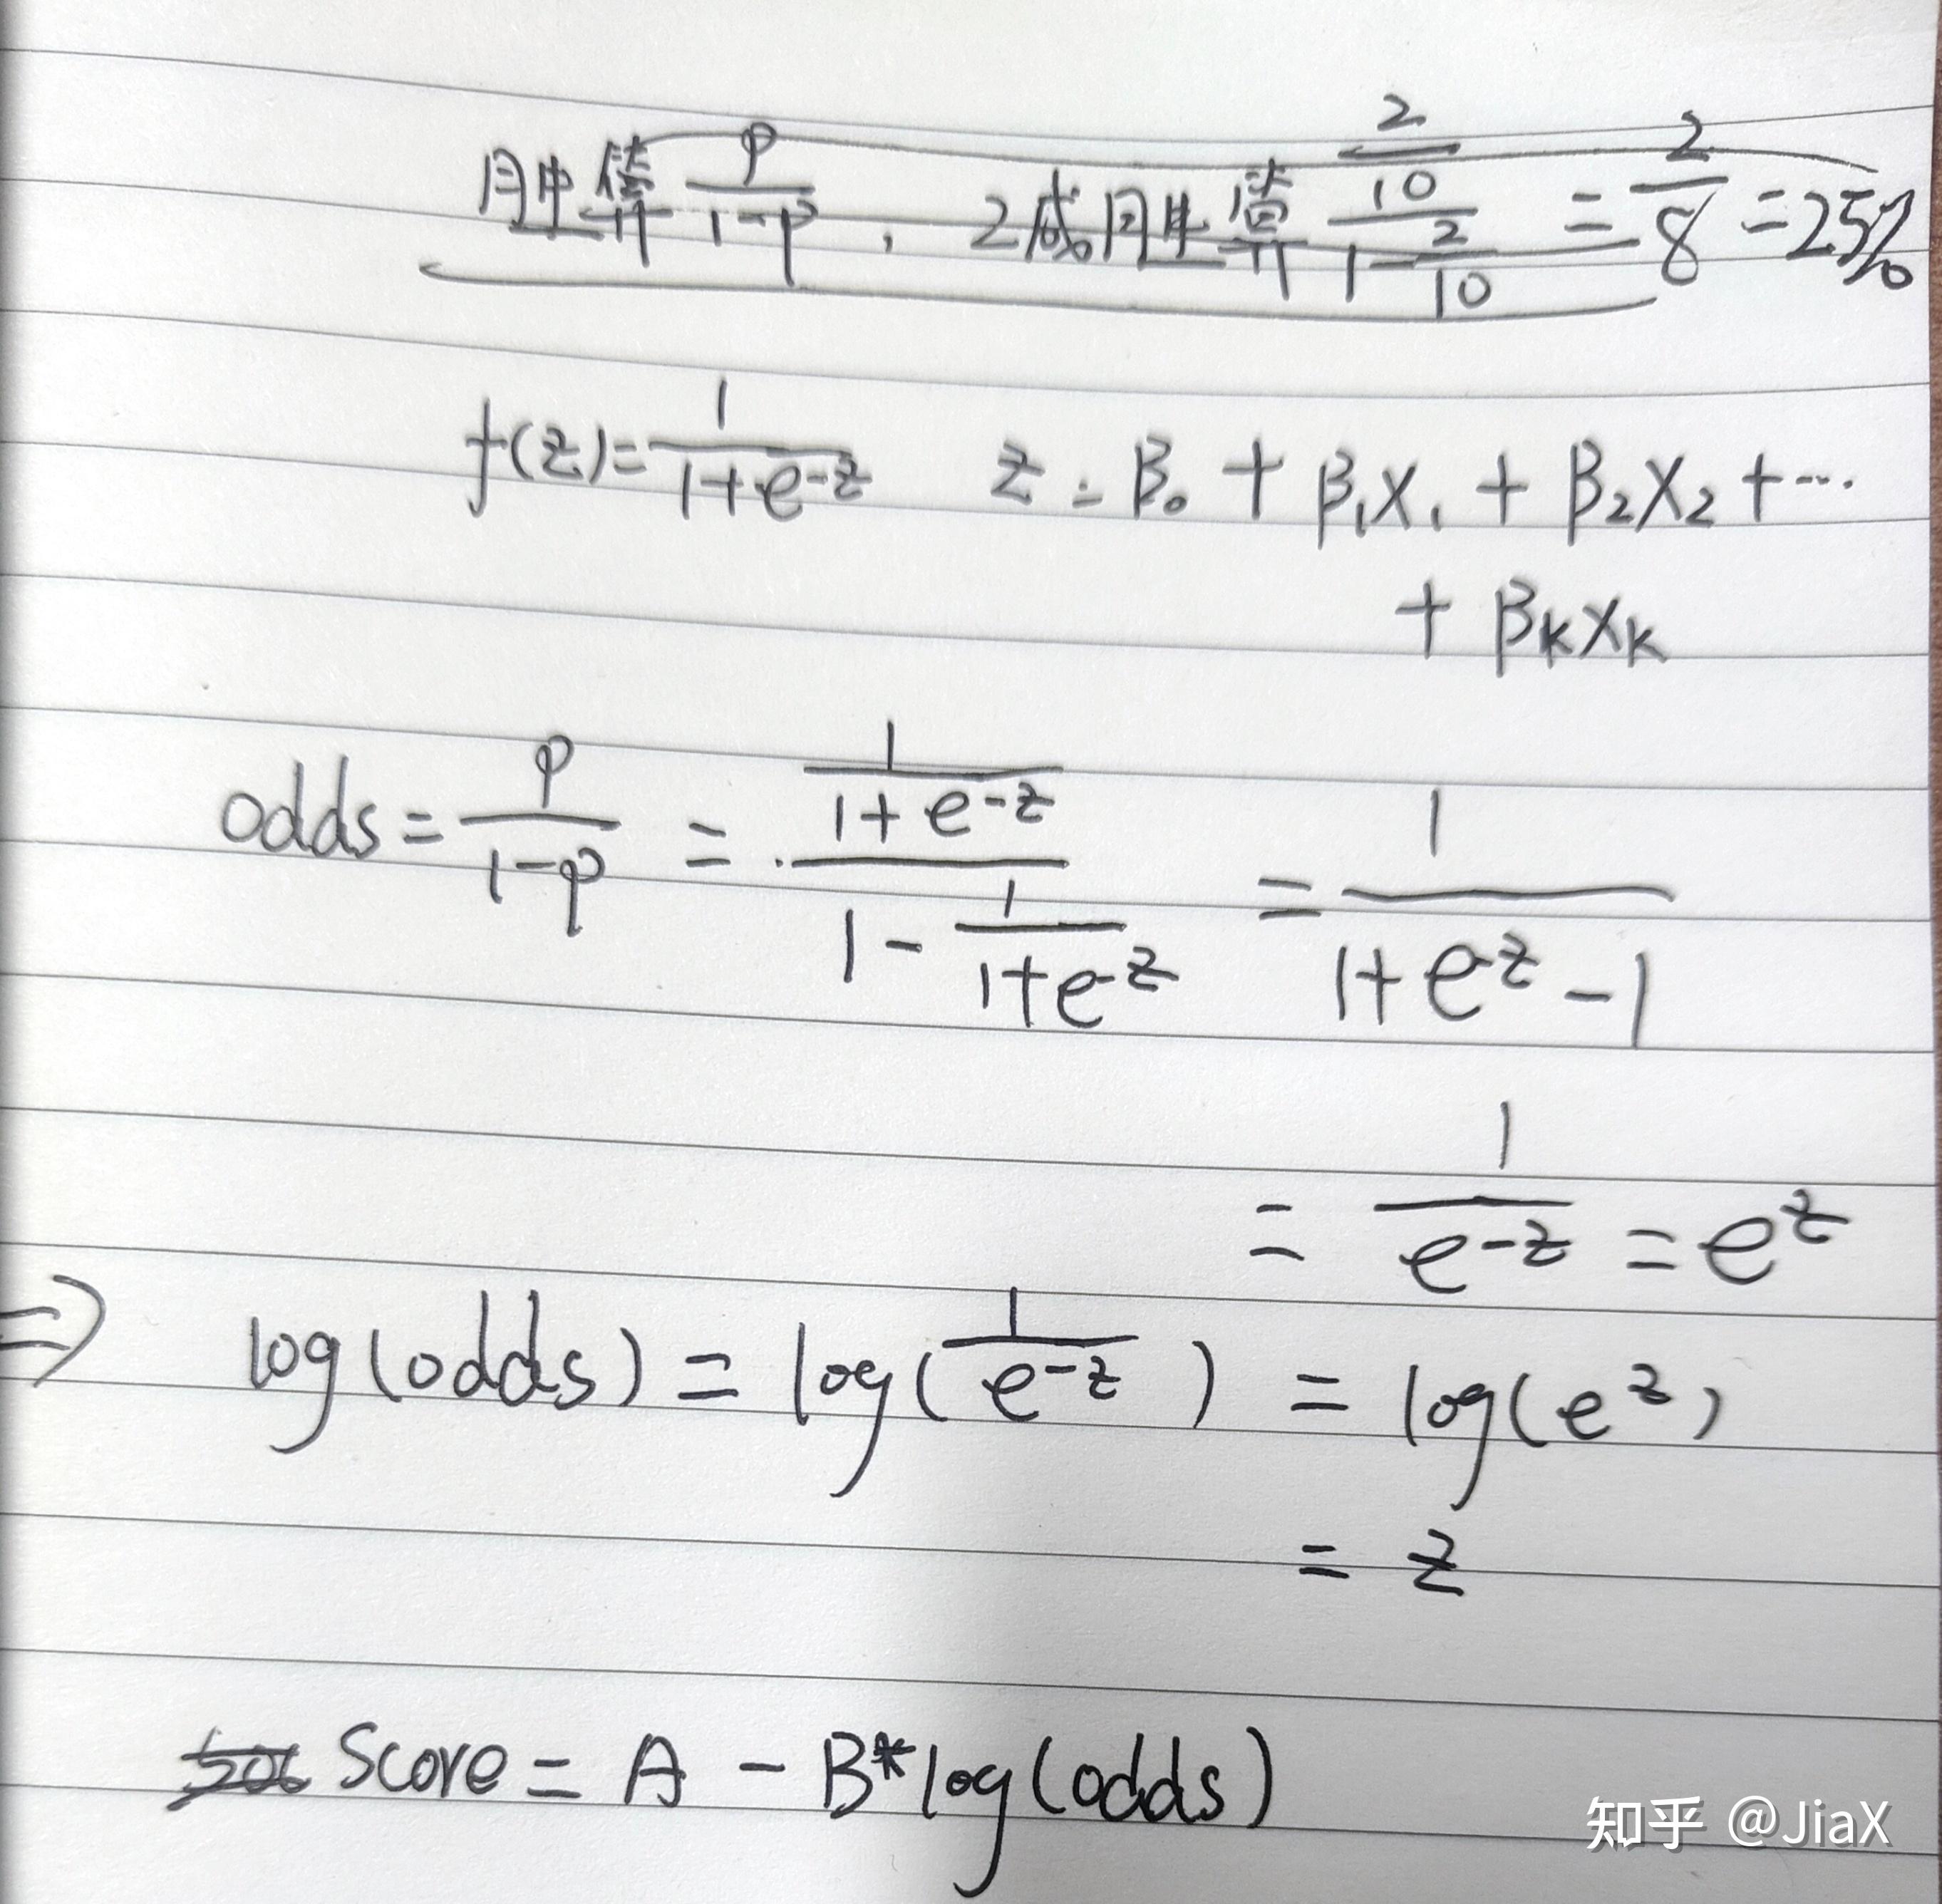 月中借升 p/(1-p) , 2成月中借升 (2/10)/(1-2/10) = 2/8 = 25%
f(z) = 1/(1+e^-z) z = β₀ + β₁X₁ + β₂X₂ + ···
+ βₖXₖ
odds = p/(1-p) = (1/(1+e^-z))/(1 - 1/(1+e^-z)) = 1/(1+e^-z - 1)
= 1/(e^-z) = e^z
⇒ log(odds) = log(1/(e^-z)) = log(e^z)
= z
Score = A - B*log(odds)
知乎 @JiaX